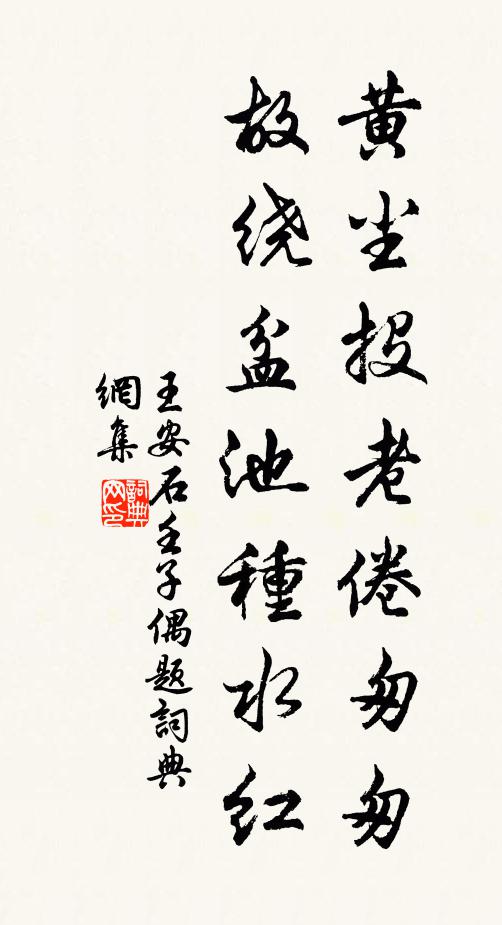 黄尘投老倦匆匆
故绕盆池種水红
王安石壬子偶题詞典
網集
詞典网印